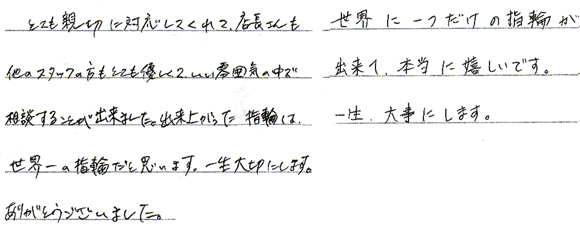 とても親切に対応してくれて、店長さんも
他のスタッフの方もとても優しくて、いい雰囲気の中で
相談することが出来ました。出来上がった指輪は、
世界一の指輪だと思います。一生大切にします。
ありがとうございました。
世界に一つだけの指輪が
出来て、本当に嬉しいです。
一生、大事にします。